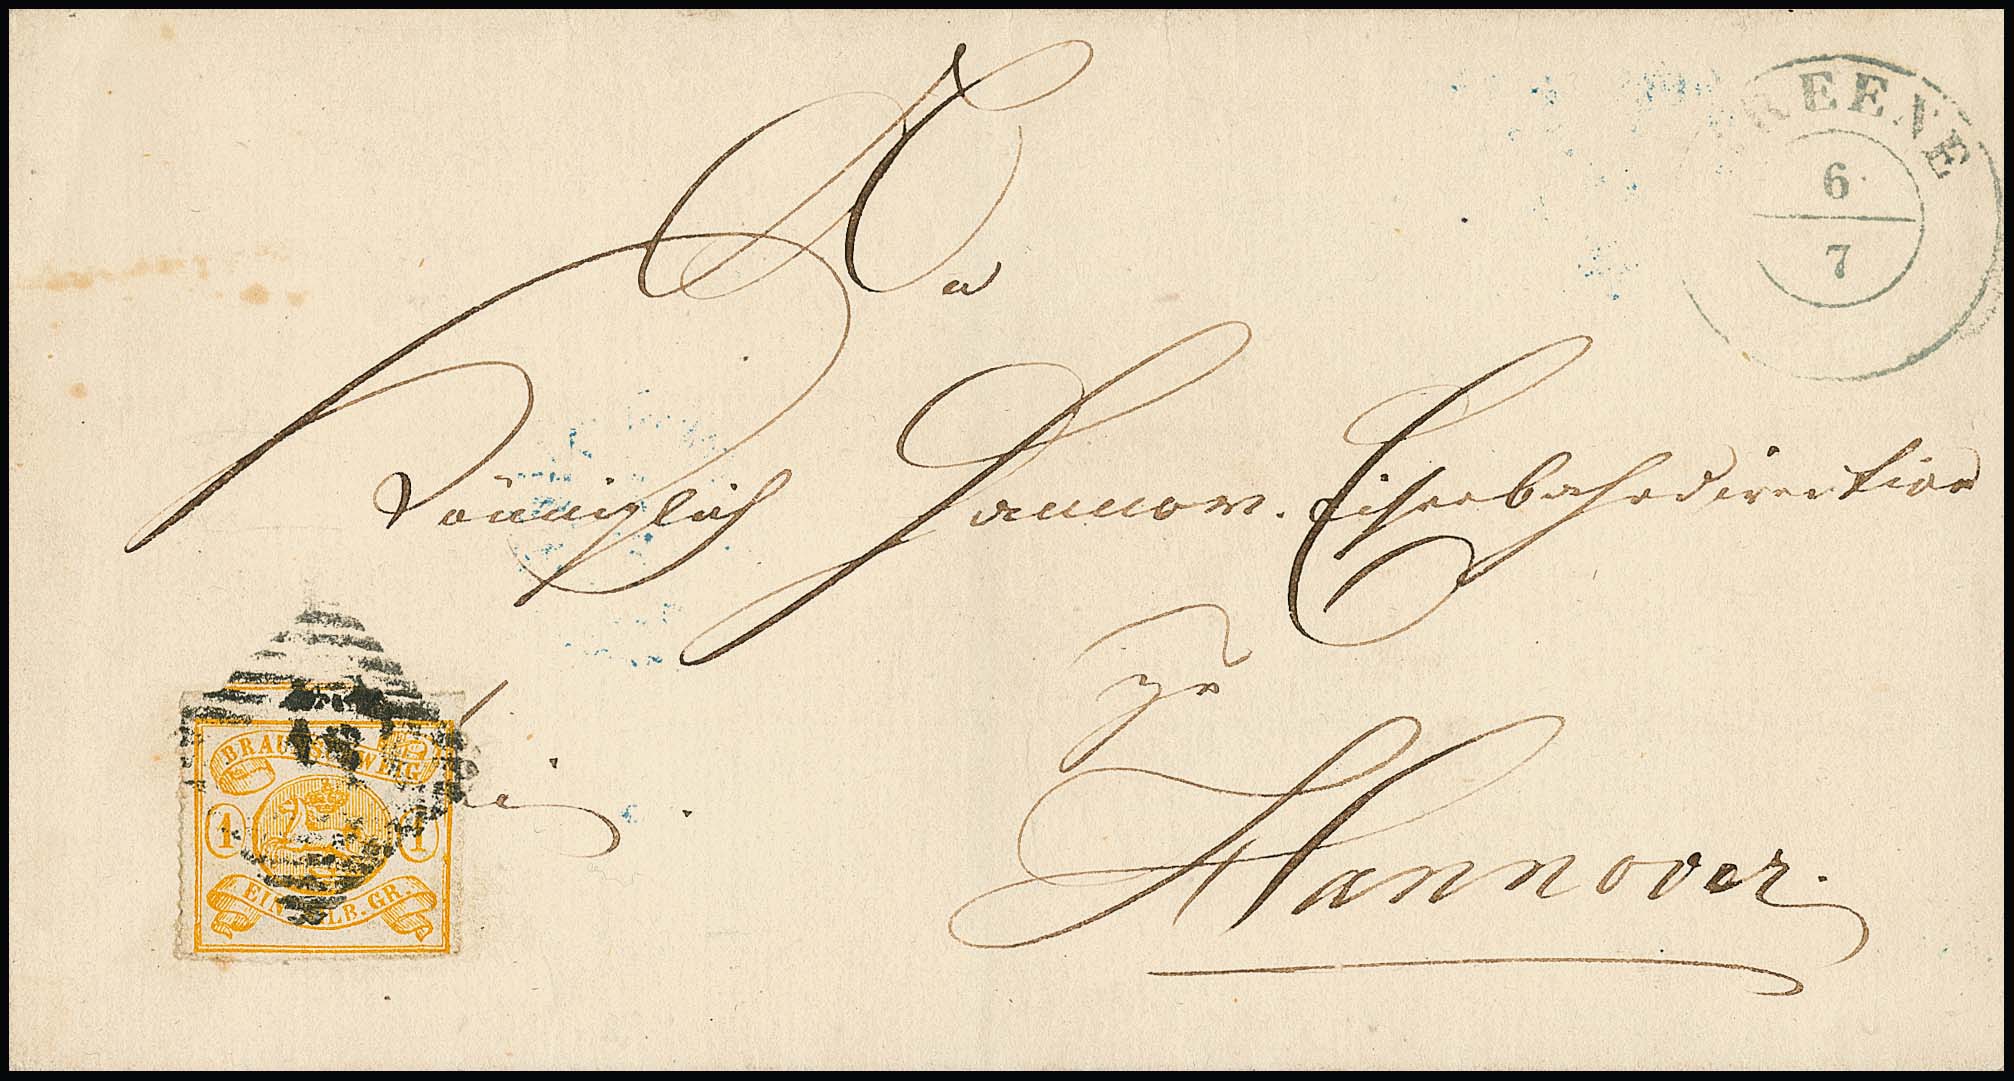 GREENE
6
7
An
Königlich Hannov. Eisenbahndirection
zu
Hannover.
BRAUNSCHWEIG
1 1
EIN SILB. GR.